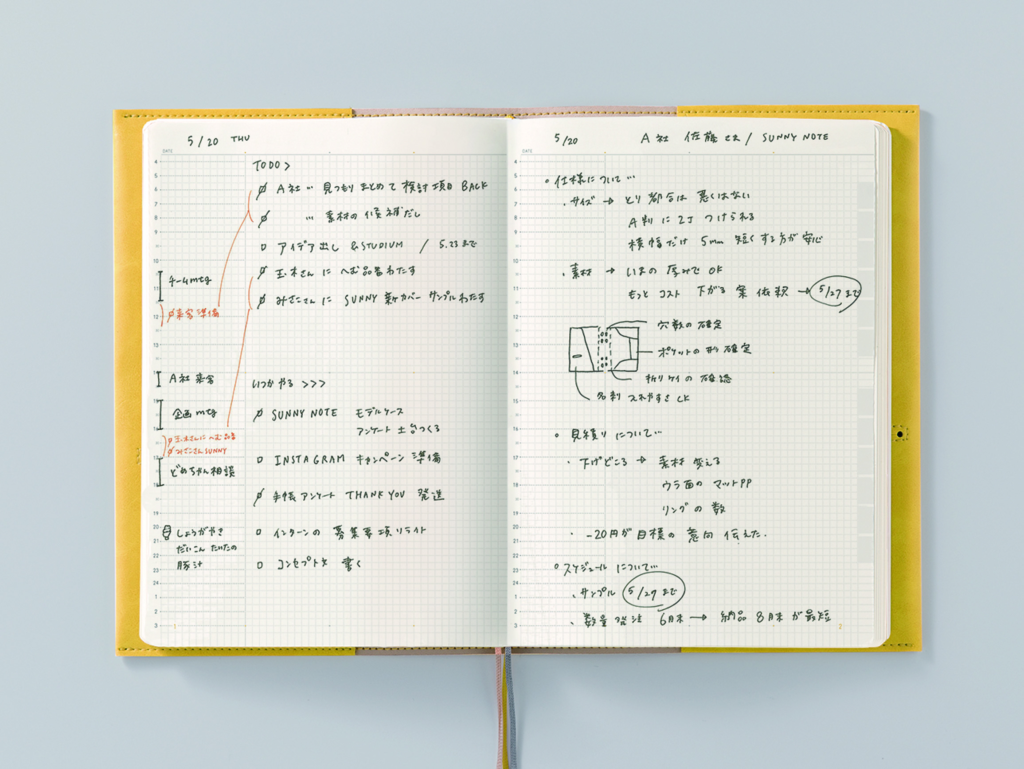 5/20 THU
TODO >
A社 … 見つもりまとめて検討項目 BACK
… 素材の候補だし
アイデア出し &STUDIUM / 5.23まで
玉木さんに へむ品番わたす
みさこさんに SUNNY 新カバー サンプルわたす
いつかやる >>>
SUNNY NOTE モデルケース
アンケート 土台つくる
INSTAGRAM キャンペーン 準備
手帳アンケート THANK YOU 発送
インターンの 募集要項リライト
コンセプト文 書く
DATE
4
5
6
7
8
9
10
11
12
13
14
15
16
17
18
19
20
21
22
23
24
1
2
3
チームmtg
来客準備
A社 来客
企画mtg
玉木さんに へむ品番
みさこさん SUNNY
どめちゃん相談
しょうがやき
だいこん たいたの
豚汁
1
5/20 A社 佐藤さま / SUNNY NOTE
DATE
4
5
6
7
8
9
10
11
12
13
14
15
16
17
18
19
20
21
22
23
24
1
2
3
仕様について…
・サイズ → とり都合は 悪くはない
A判に 2丁 つけられる
横幅だけ 5mm 短くする方が安心
・素材 → いまの 厚みで OK
もっと コスト 下がる 案 依頼 → 5/27まで
穴数の確定
ポケットの形 確定
折りケイの 確認
名刺 入れやすさ CK
見積りについて…
・下げどころ → 素材 変える
ウラ面の マットPP
リングの 数
・−20円が目標の 意向 伝えた.
スケジュール について…
・サンプル 5/29まで
・数量 発注 6月末 → 納品 8月末 が最短
2